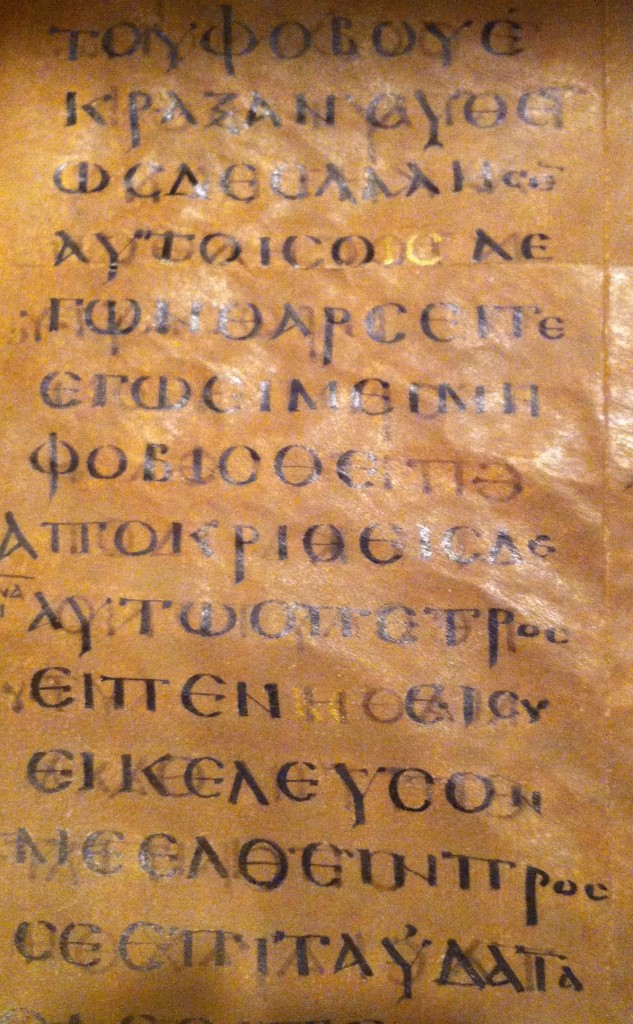 ΤΟΥΦΟΒΟΥΕ
ΚΡΑΞΑΝΕΥΘΕ
ΩϹΔΕΕΛΑΛΗϹΕ̅
ΑΥΤΟΙϹΟΙϹ ΛΕ
ΓΩΝΘΑΡϹΕΙΤΕ
ΕΓΩΕΙΜΕΙΜΗ
ΦΟΒΙϹΘΕ
ΑΠΟΚΡΙΘΕΙϹΔΕ
ΑΥΤΩΟΠΕΤΡΟϹ
ΕΙΠΕΝ ΕΙϹΥ
ΕΙΚΕΛΕΥϹΟΝ
ΜΕΕΛΘΕΙΝΠΡΟϹ
ϹΕΕΠΙΤΑΥΔΑΤΑ